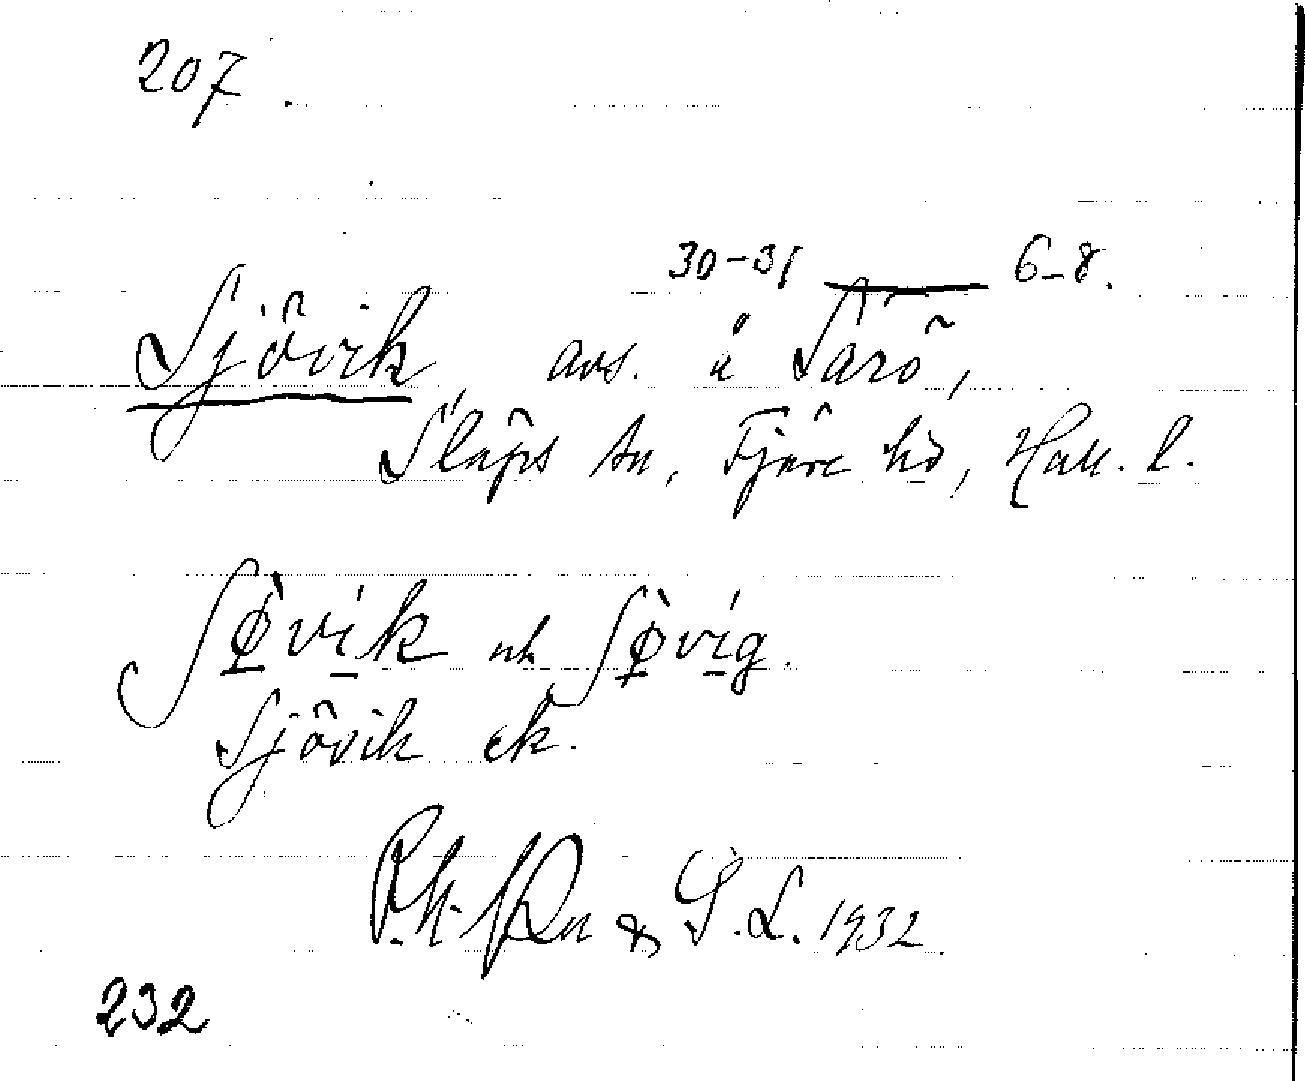 207.
30-31 6-8.
Sjövik, avs. å Särö,
Släps sn, Fjäre hd, Hall. l.
ʃø̀vík och ʃø̀víg.
Sjövik ek.
S. L. 1932
232